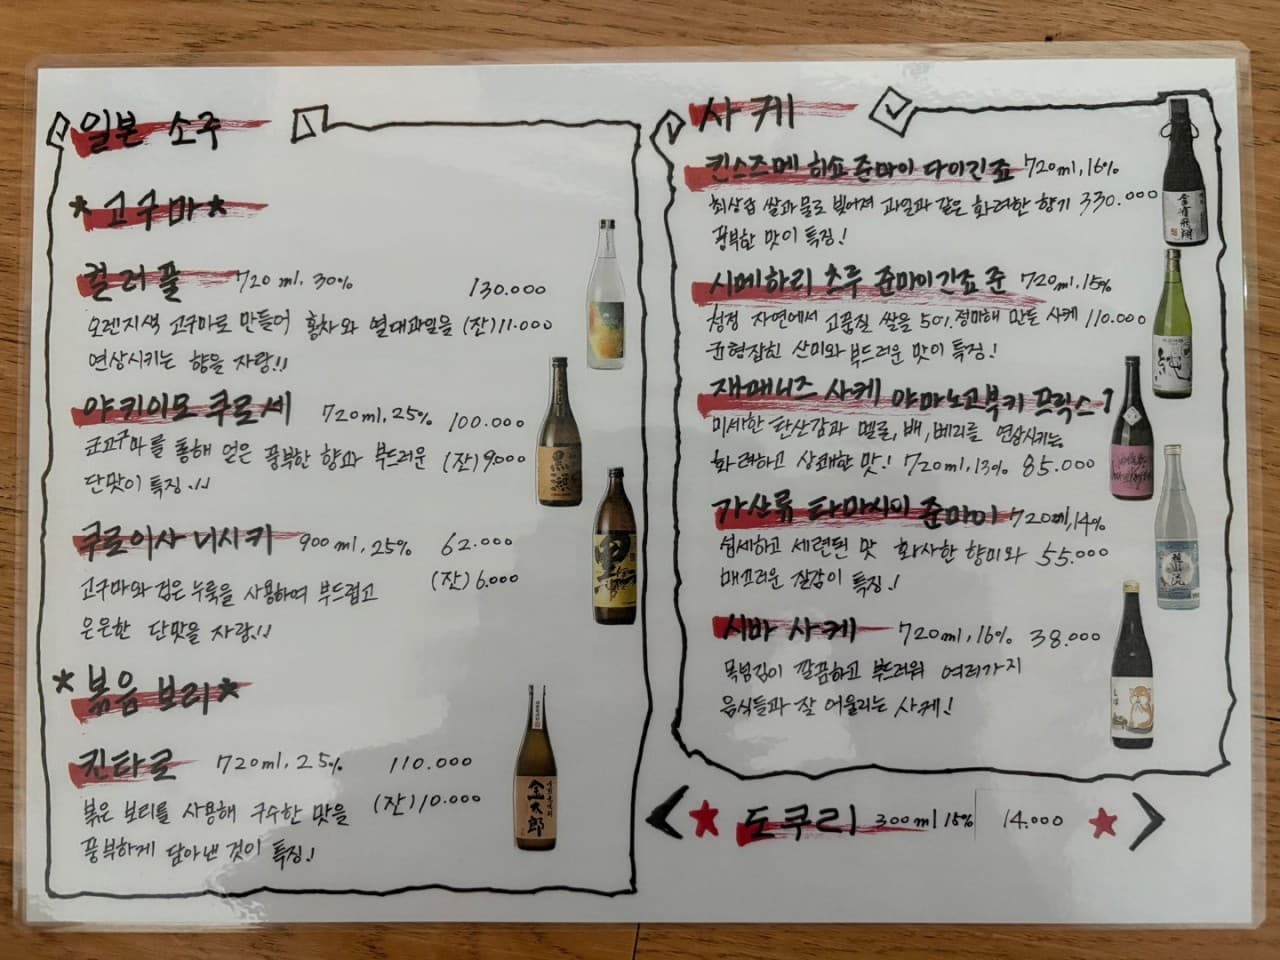 일본 소주
*고구마*
컬러풀 720ml, 30% 130.000
오렌지색 고구마로 만들어 홍차와 열대과일을 (잔)11.000
연상시키는 향을 자랑!!
야키이모 쿠로세 720ml, 25% 100.000
군고구마를 통해 얻은 풍부한 향과 부드러운 (잔)9.000
단맛이 특징!!
쿠로이사 니시키 900ml, 25% 62.000
고구마와 검은 누룩을 사용하여 부드럽고 (잔)6.000
은은한 단맛을 자랑!!
*볶음 보리*
킨타로 720ml, 25% 110.000
볶은 보리를 사용해 구수한 맛을 (잔)10.000
풍부하게 담아낸 것이 특징!
사케
킨스즈메 히쇼 준마이 다이긴죠 720ml, 16%
최상급 쌀과 물로 빚어져 과일과 같은 화려한 향기 330.000
풍부한 맛이 특징!
시메하리 츠루 준마이긴죠 준 720ml, 15%
청정 자연에서 고품질 쌀을 50% 정미해 만든 사케 110.000
균형잡힌 산미와 부드러운 맛이 특징!
재패니즈 사케 야마노고부키 프릭스 1
미세한 탄산감과 멜론, 배, 베리를 연상시키는
화려하고 상쾌한 맛! 720ml, 13% 85.000
카산류 타마시이 준마이 720ml, 14%
섬세하고 세련된 맛 화사한 향미와 55.000
매끄러운 질감이 특징!
시바 사케 720ml, 16% 38.000
목넘김이 깔끔하고 부드러워 여러가지
음식들과 잘 어울리는 사케!
도쿠리 300ml 15% 14.000
黒瀬
黒
金太郎
金雀飛翔
純